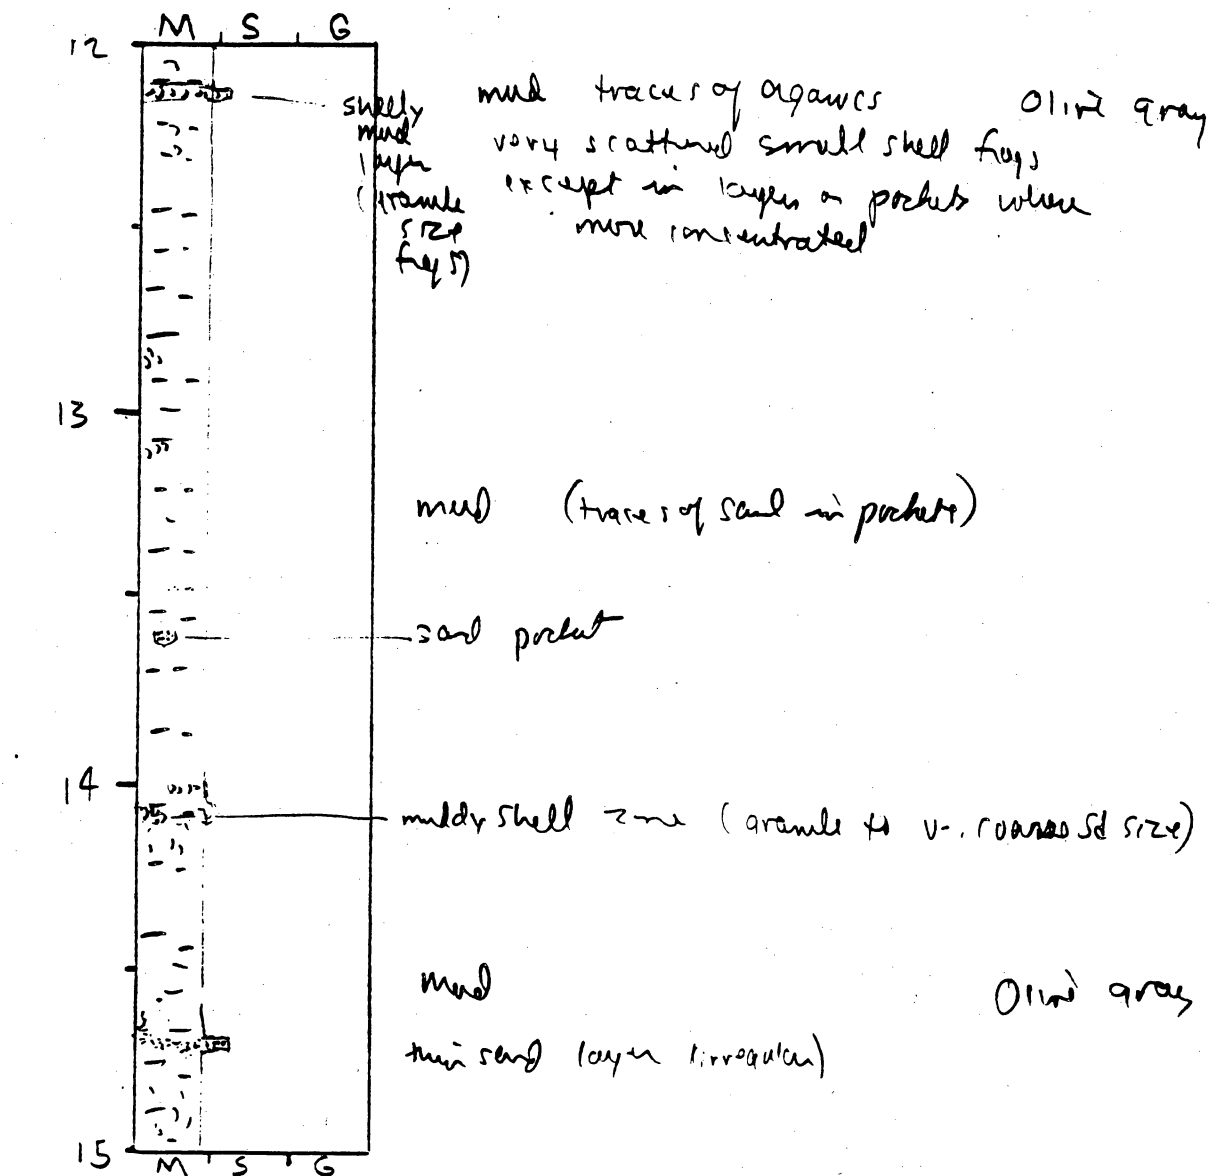 M S G
12
shelly
mud
layer
(granule
size
frags)
mud traces of organics Olive gray
very scattered small shell frags
except in layers or pockets where
more concentrated
13
mud (traces of sand in pockets)
sand pocket
14
muddy shell zone (granule to v. coarse sd size)
mud Olive gray
thin sand layer (irregular)
15
M S G